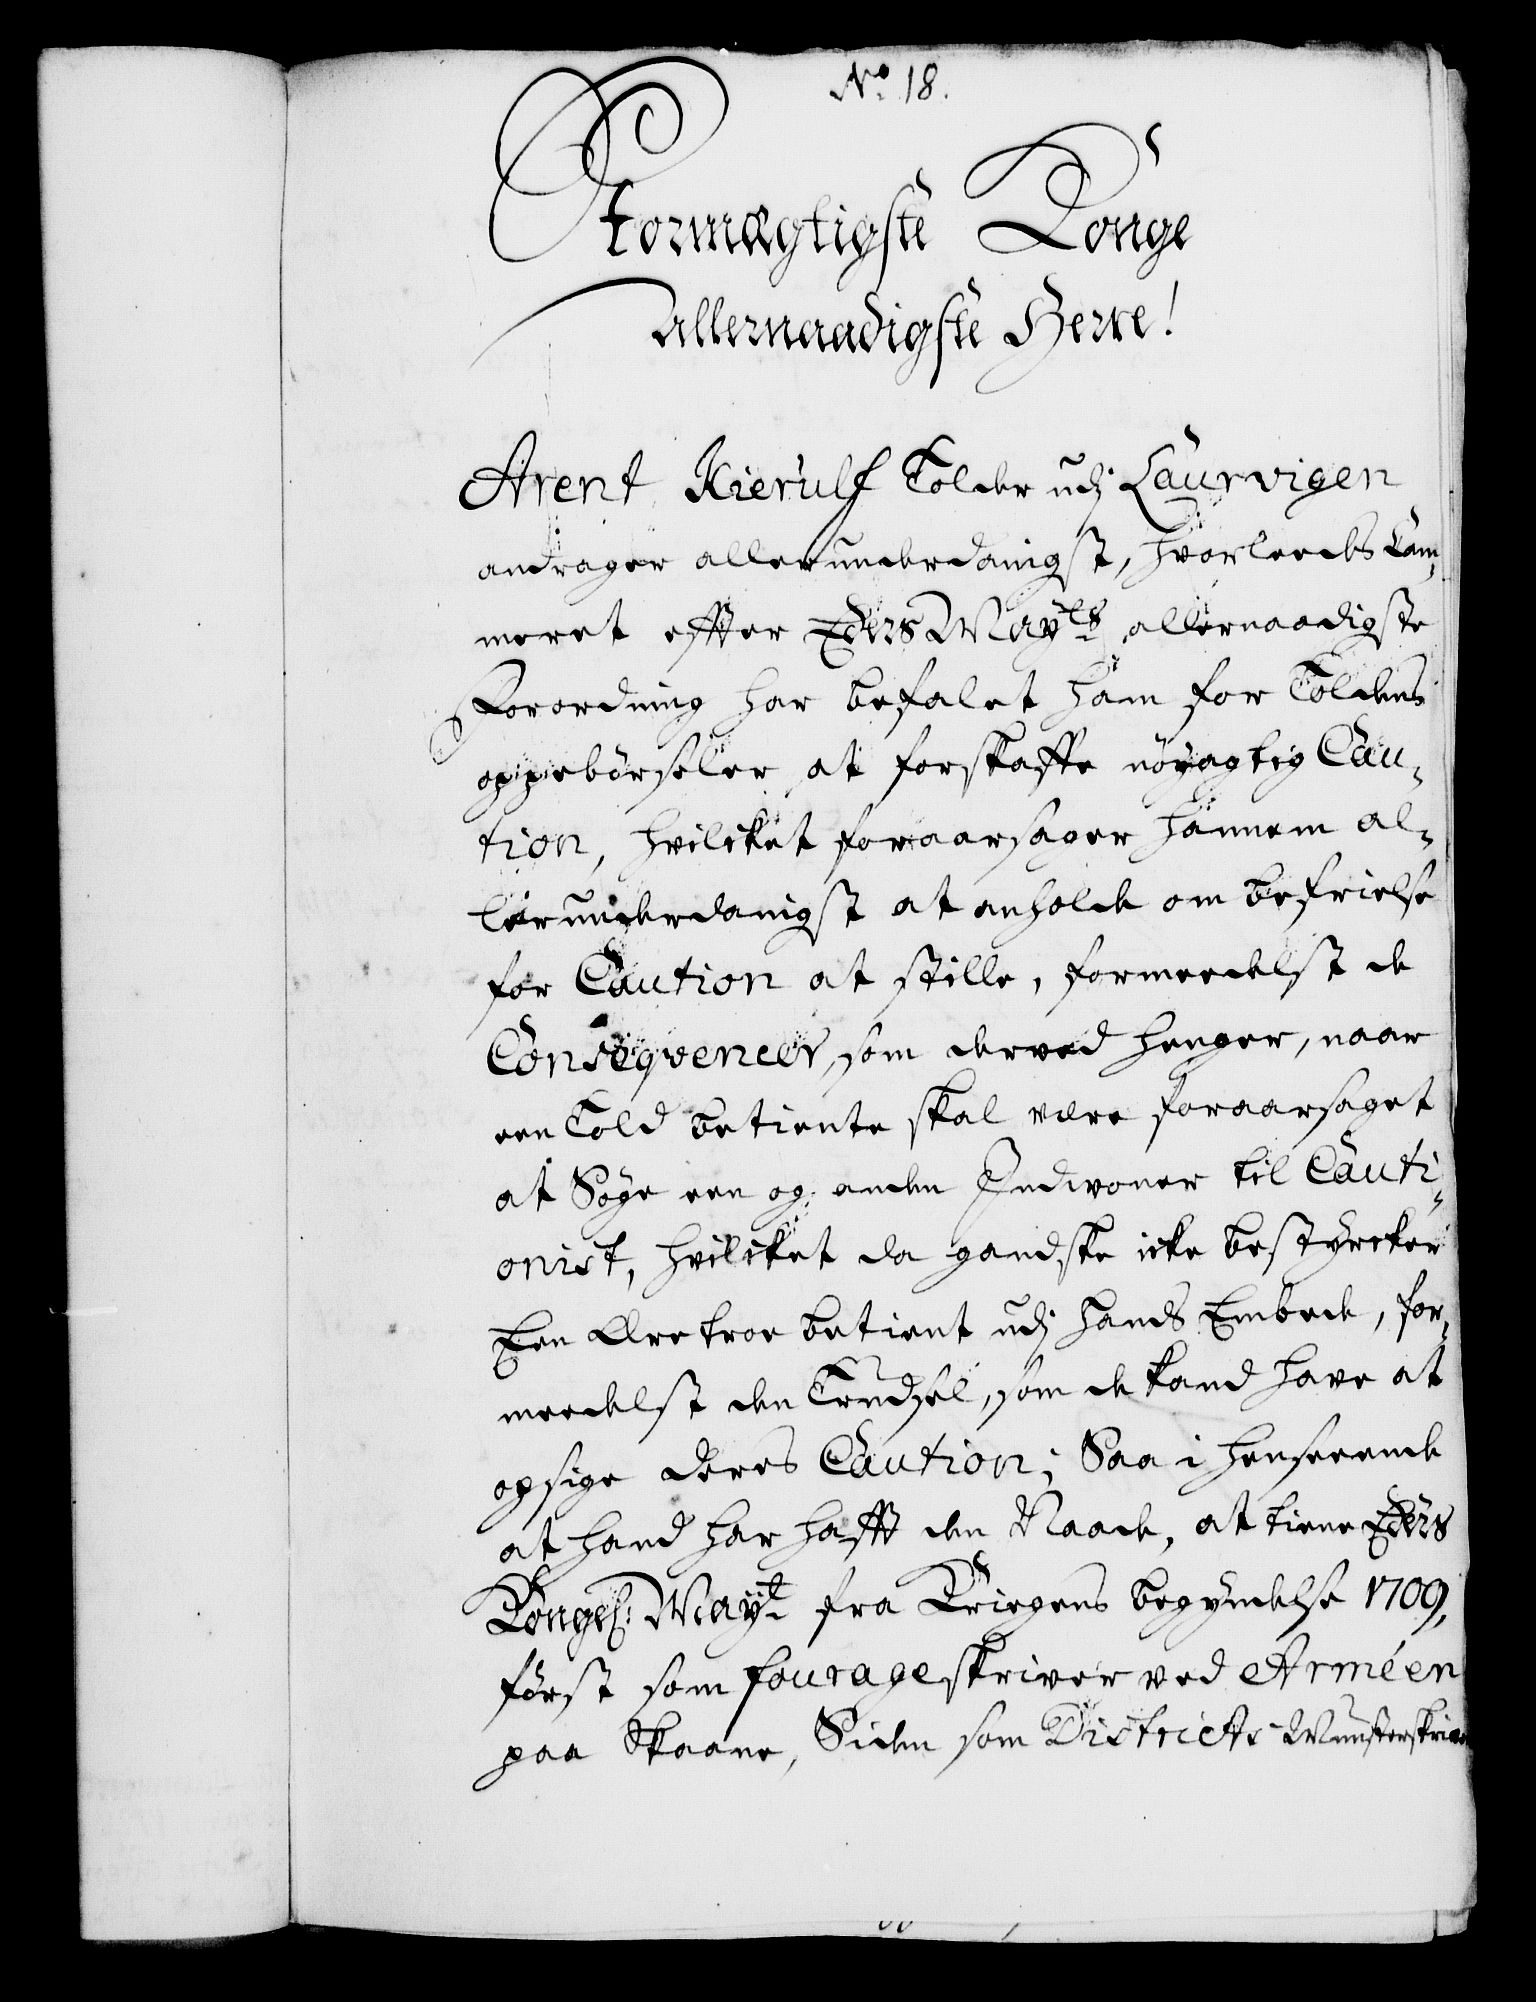 No. 18.
Stormægtigste Konge
Allernaadigste Herre!
Arent Kierulf Tolder udj Laurvigen
andrager allerunderdanigst, hvorleedes Cam„
meret effter Eders Mayts allernaadigste
Forordning har befalet ham for Toldens
oppebørseler at forskaffe nöyagtig Cau„
tion, hvilcket foraarsager hannem al„
lerunderdanigst at anholde om befrielse
for Caution at stille, formeedelst de
Conseqvencer, som derved henger, naar
een Told betiente skal være foraarsaget
at Søge een og anden Indvoner til Cauti„
onist, hvilcket da gandske icke bestyrcker
Een Ære troe betient udj hands Embede, for„
meedelst den Trudsel, som de kand have at
opsige deres Caution; Saa i henseende
at hand har hafft den Naade, at tiene Eders
Kongel: Mayt fra Kriegens begyndelse 1709,
först som fourageskriver ved Arméen
paa Skaane, Siden som Districts-Munsterskriver